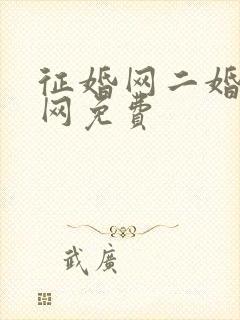 征婚网二婚
网免费
武廣